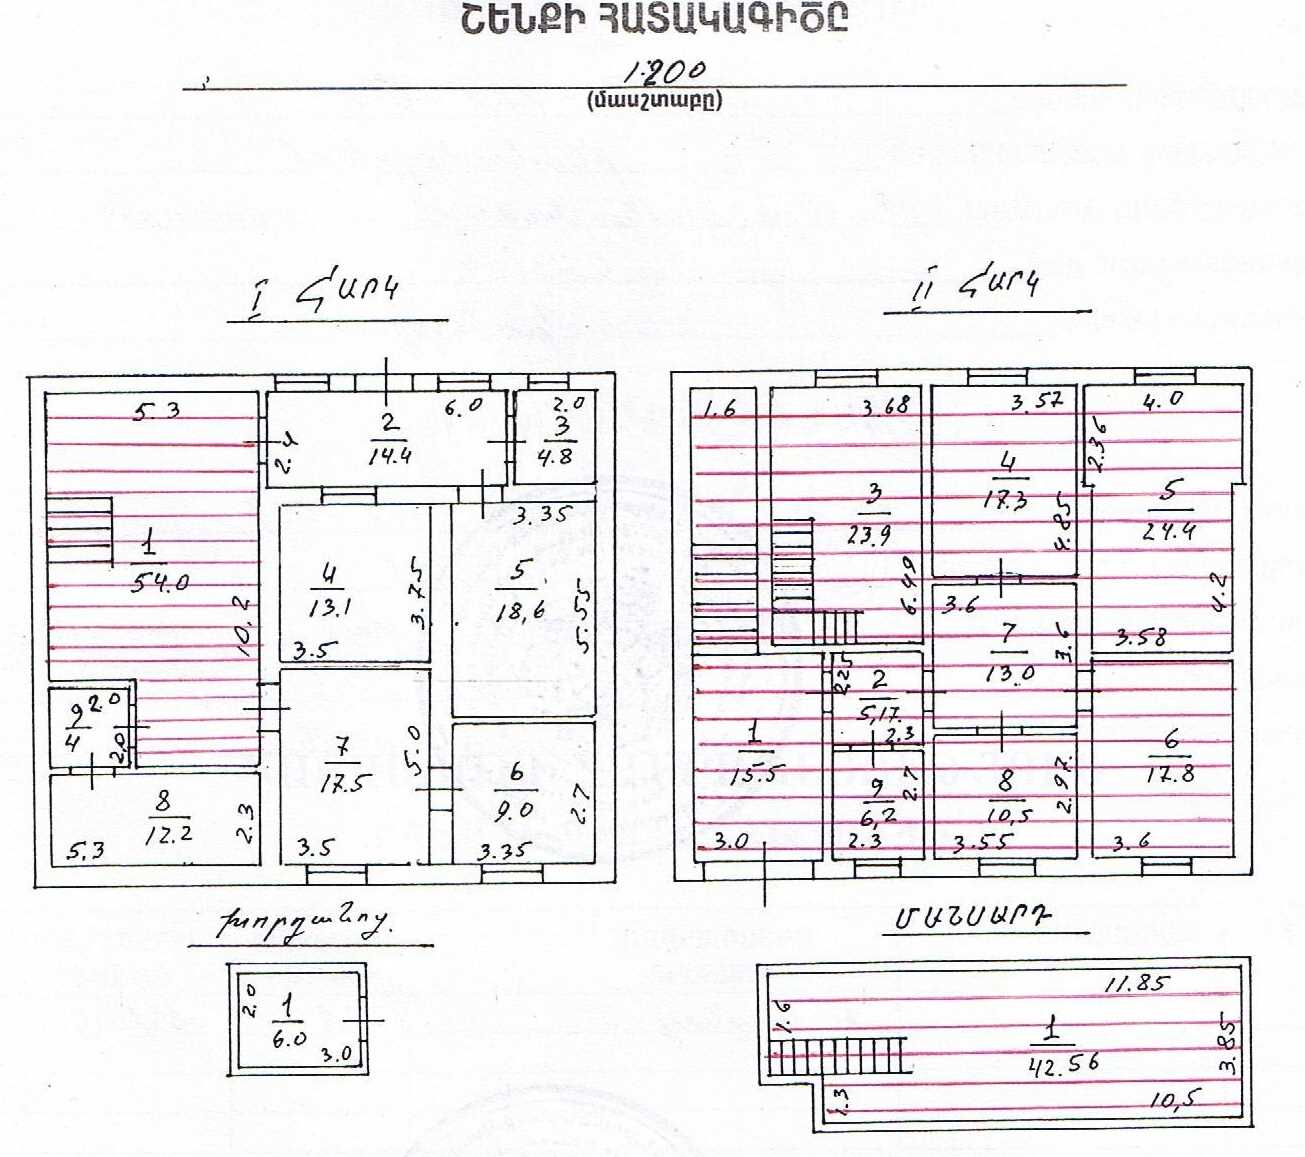 ՇԵՆՔԻ ՀԱՏԱԿԱԳԻԾԸ
1:200
(մասշտաբը)
I Հարկ
5.3
6.0
2.0
2
14.4
3
4.8
2.4
3.35
1
54.0
4
13.1
3.75
5
18,6
5.55
10,2
3.5
9
4
2.0
2.0
7
17.5
5.0
6
9.0
2.7
8
12.2
2.3
5.3
3.5
3.35
II Հարկ
1.6
3.68
3.57
4.0
2.36
3
23.9
4
17.3
4.85
5
24.4
6.49
3.6
4.2
7
13.0
3.6
3.58
2.25
2
5,17.
2.3
1
15.5
6
17.8
9
6,2
2.7
8
10,5
2.97
3.0
2.3
3.55
3.6
խորդանոց.
2.0
1
6.0
3.0
ՄԱՆՍԱՐԴ
11.85
1.6
1
42.56
3.85
1.3
10,5